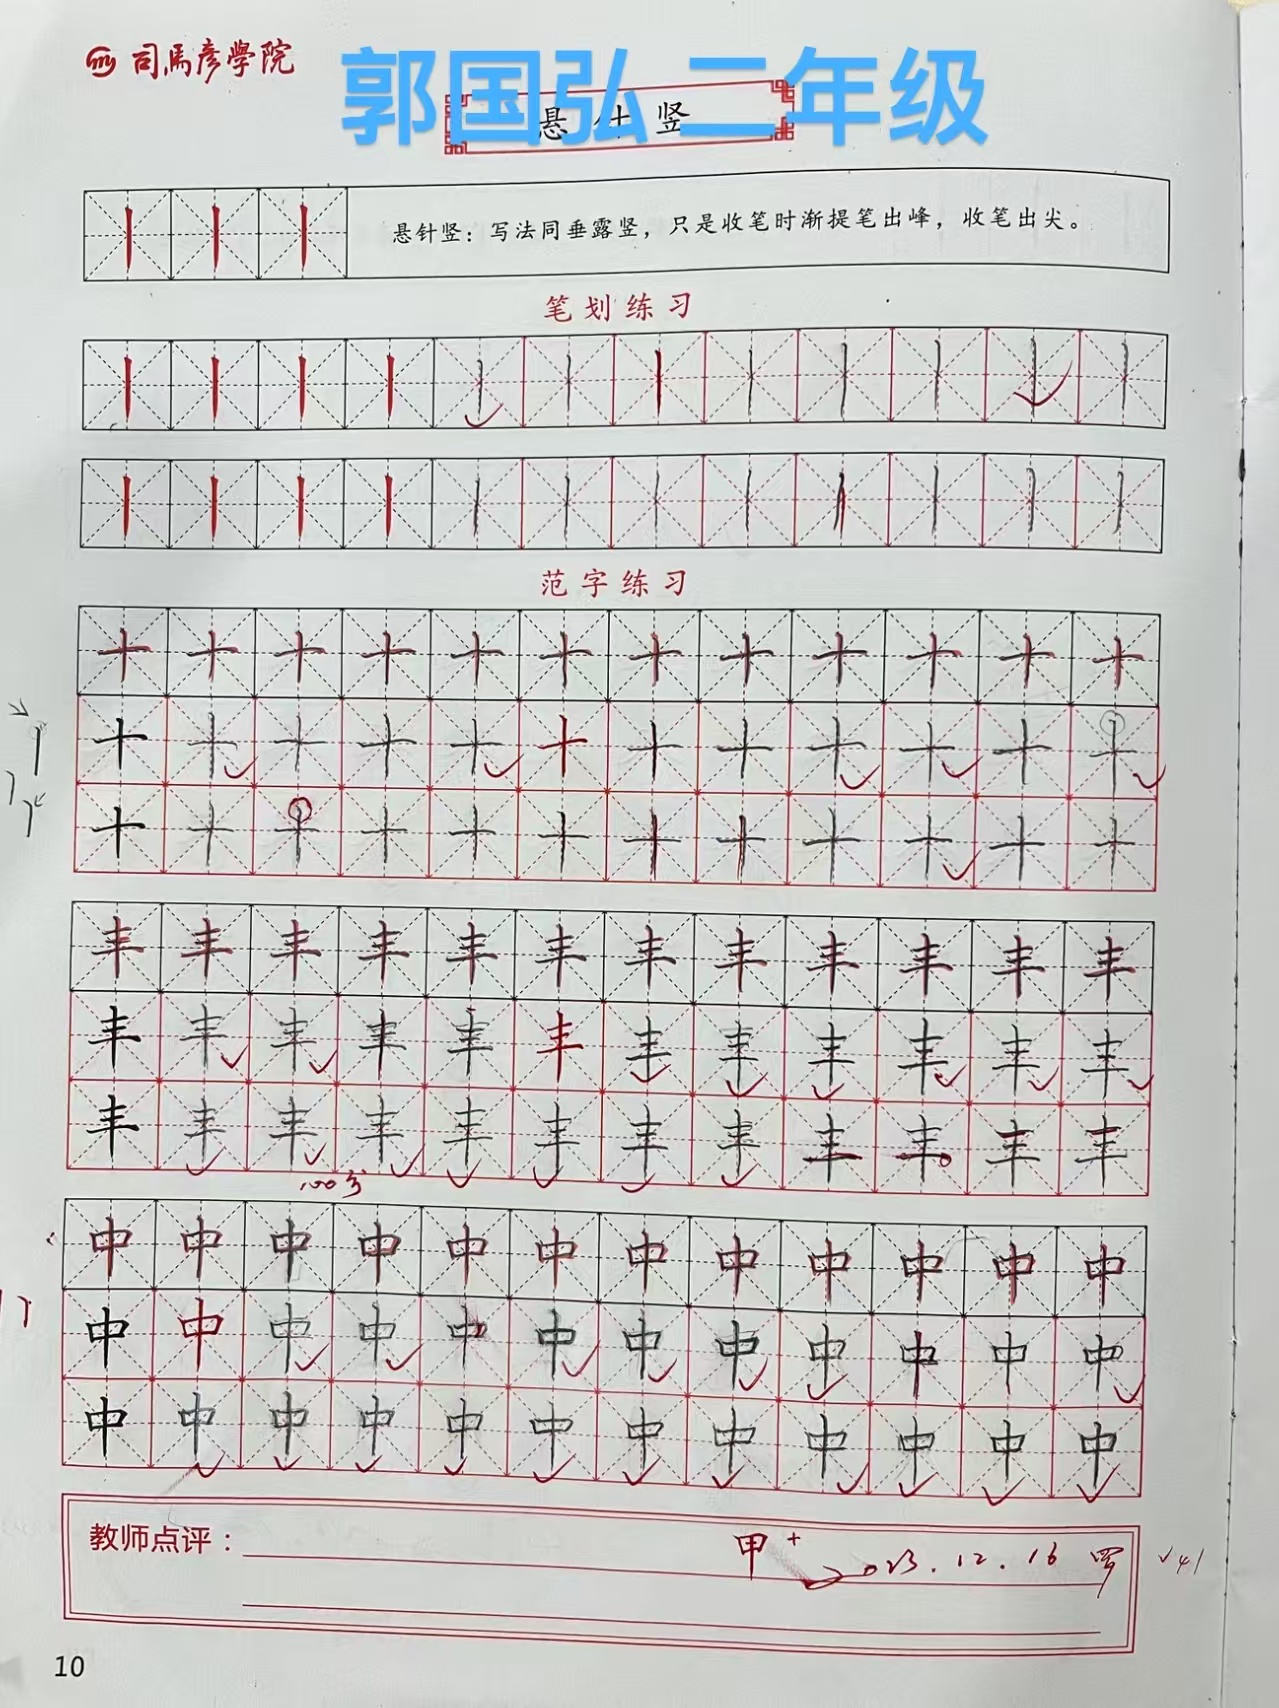 司马彦學院
郭国弘 二年级
悬针竖
悬针竖：写法同垂露竖，只是收笔时渐提笔出峰，收笔出尖。
笔划练习
范字练习
十十十十十十十十十十十十
十十十十十十十十十十十十
十十十十十十十十十十十十
丰丰丰丰丰丰丰丰丰丰丰丰
丰丰丰丰丰丰丰丰丰丰丰丰
丰丰丰丰丰丰丰丰丰丰丰丰
100分
中中中中中中中中中中中中
中中中中中中中中中中中中
中中中中中中中中中中中中
教师点评：
甲+ 2023.12.16 罗
10